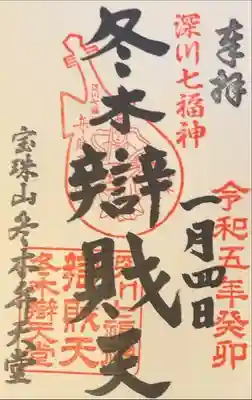 奉拝
深川七福神
令和五年癸卯
一月四日
冬木辯財天
深川七福神
宝珠山冬木弁天堂
深川七福神
辯財天
冬木辯天堂